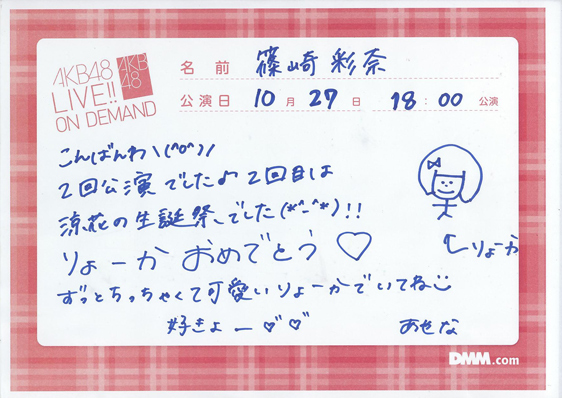 AKB48
LIVE!!
ON DEMAND
AKB
48
名前 篠崎 彩奈
公演日 10月27日 18:00 公演
こんばんわ\(^o^)/
2回公演でした♪2回目は
涼花の生誕祭でした(*^-^*)!!
りょーか おめでとう♡
ずっとちっちゃくて可愛いりょーかでいてね
好きよー♡♡
あやな
りょーか
DMM.com